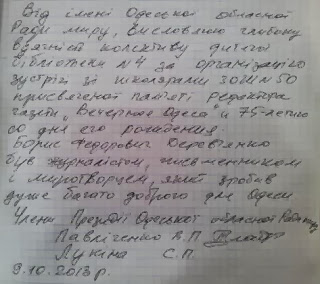 Від імені Одеської обласної
Ради миру, висловлюю глибоку
вдячність колективу дитячої
бібліотеки №4 за організацію
зустрічі зі школярами ЗОШ №50
присвяченої пам'яті редактора
газети „Вечерняя Одесса" и 75-летию
со дня его рождения.
Борис Федорович Деревянко
був журналістом, письменником
і миротворцем, який зробив
дуже багато доброго для Одеси
Члени Президії Одеської обласної Ради миру
Павліченко В.П.
Лукіна С.П.
9.10.2013 р.